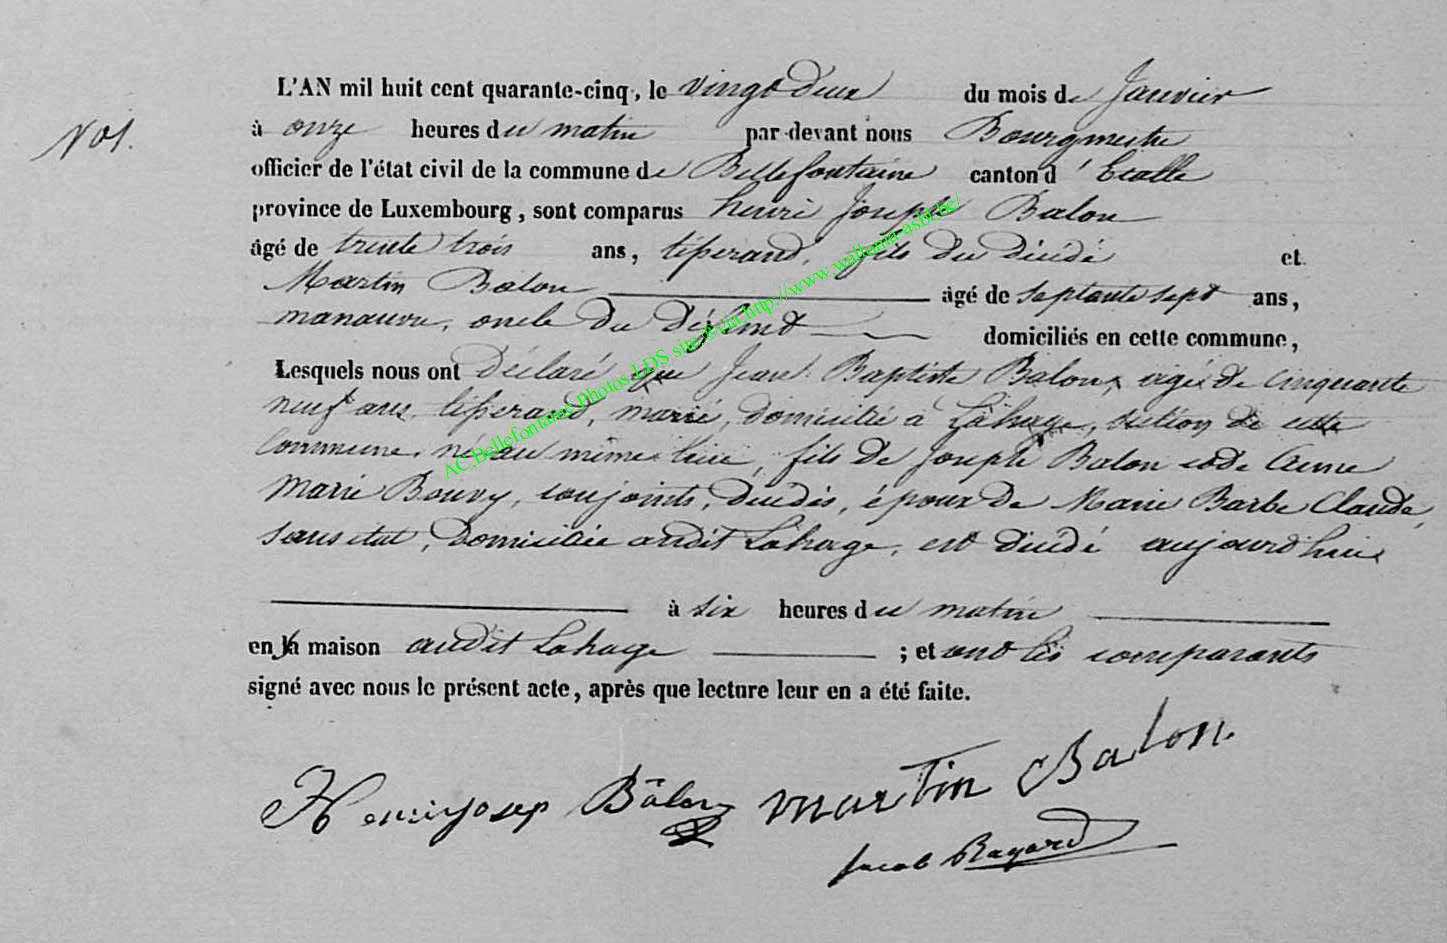 No 1.
L'AN mil huit cent quarante-cinq, le vingt deux du mois de Janvier
à onze heures du matin par-devant nous Bourgmestre
officier de l'état civil de la commune de Bellefontaine canton d'Etalle
province de Luxembourg, sont comparus henri Joseph Balon
âgé de trente trois ans, tisserand, fils du décédé et
Martin Balon âgé de septante sept ans,
manœuvre, oncle du défunt domiciliés en cette commune,
Lesquels nous ont déclaré que Jean Baptiste Balon, agé de cinquante
neuf ans, tisserand, marié, domicilié à Lahage, section de cette
commune, né au même lieu, fils de Joseph Balon et de Anne
Marie Bouvy, conjoints, décédés, époux de Marie Barbe Claude,
sans etat, domiciliée audit Lahage, est décédé aujourd'hui
à six heures du matin
en sa maison audit Lahage ; et ont les comparants
signé avec nous le présent acte, après que lecture leur en a été faite.
Henri josep Bâlon martin Balon.
Jacob Bayard
AC Bellefontaine Photos LDS site via http://www.wallonia-asbl.be/